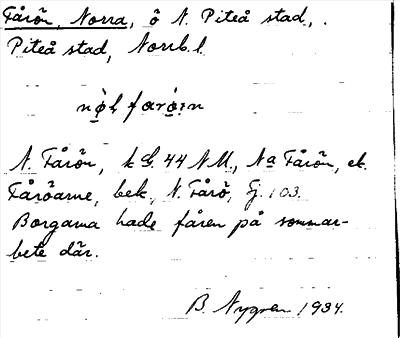 Fårön, Norra, ö N. Piteå stad,
Piteå stad, Norrb. l.
N. Fårön, k bl. 44 NU, Na Fårön, ek.
Fåröarne, bek., N. Fårö, Gj. 103.
Borgarna hade fåren på sommar-
bete där.
B. Nygren 1934.